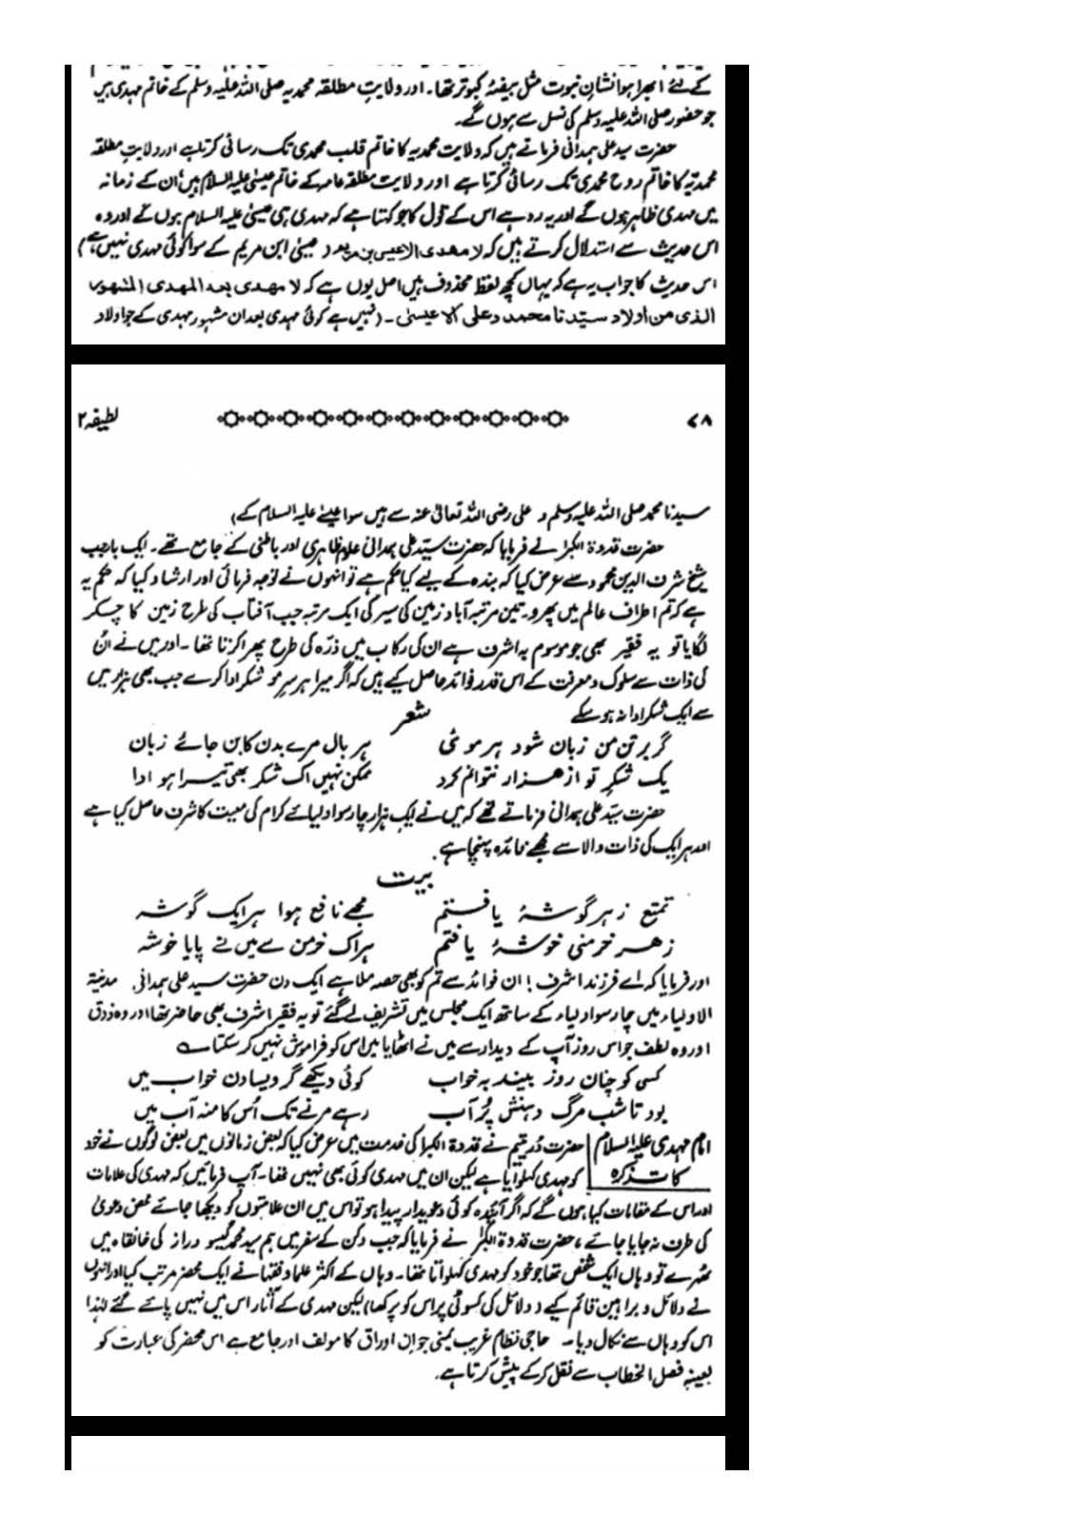 کے لئے ابھرا ہوا نشان نبوت مثل بیضۂ کبوتر تھا۔ اور ولایت مطلقہ محمدیہ صلی اللہ علیہ وسلم کے خاتم مہدی ہیں
جو حضور صلی اللہ علیہ وسلم کی نسل سے ہوں گے۔
حضرت سید علی ہمدانی فرماتے ہیں کہ ولایت محمدیہ کا خاتم قلب محمدی تک رسائی کرتا ہے اور ولایت مطلقہ
محمدیہ کا خاتم روح محمدی تک رسائی کرتا ہے اور ولایت مطلقہ عامہ کے خاتم عیسیٰ علیہ السلام ہیں ان کے زمانہ
میں مہدی ظاہر ہوں گے اور یہ رد ہے اس کے قول کا جو کہتا ہے کہ مہدی ہی عیسیٰ علیہ السلام ہوں گے اور وہ
اس حدیث سے استدلال کرتے ہیں کہ لا مھدی الا عیسی بن مریم (عیسیٰ ابن مریم کے سوا کوئی مہدی نہیں ہے)
اس حدیث کا جواب یہ ہے کہ یہاں کچھ لفظ محذوف ہیں اصل یوں ہے کہ لا مھدی بعد المھدی المشھور
الذی من اولاد سیّدنا محمد وعلی الا عیسیٰ۔ (نہیں ہے کوئی مہدی بعد ان مشہور مہدی کے جو اولاد
۷۸ لطیفہ ۲
سیدنا محمد صلی اللہ علیہ وسلم و علی رضی اللہ تعالیٰ عنہ سے ہیں سوا عیسیٰ علیہ السلام کے)
حضرت قدوۃ الکبریٰ نے فرمایا کہ حضرت سیّد علی ہمدانی علوم ظاہری اور باطنی کے جامع تھے۔ ایک بار جب
شیخ شرف الدین محمود سے عرض کیا کہ بندہ کے لیے کیا حکم ہے تو انہوں نے توجہ فرمائی اور ارشاد کیا کہ حکم یہ
ہے کہ تم اطراف عالم میں پھرو۔ تین مرتبہ آباد زمین کی سیر کی ایک مرتبہ جب آفتاب کی طرح زمین کا چکر
لگایا تو یہ فقیر بھی جو موسوم بہ اشرف ہے ان کی رکاب میں ذرہ کی طرح پھرا کرتا تھا۔ اور میں نے ان
کی ذات سے سلوک و معرفت کے اس قدر فوائد حاصل کیے ہیں کہ اگر میرا ہر سر مو شکر ادا کرے جب بھی ہزار میں
سے ایک شکر ادا نہ ہو سکے
شعر
گر بر تن من زبان شود ہر موئی ہر بال مرے بدن کا بن جائے زبان
یک شکر تو از ھزار نتوانم کرد ممکن نہیں اک شکر بھی تیرا ہو ادا
حضرت سیّد علی ہمدانی فرماتے تھے کہ میں نے ایک ہزار چار سو اولیائے کرام کی معیت کا شرف حاصل کیا ہے
اور ہر ایک کی ذات والا سے مجھے فائدہ پہنچا ہے۔
بیت
تمتع ز ہر گوشۂ یافتم مجھے نافع ہوا ہر ایک گوشہ
ز ھر خرمنی خوشۂ یافتم ہر اک خرمن سے میں نے پایا خوشہ
اور فرمایا کہ اے فرزند اشرف! ان فوائد سے تم کو بھی حصہ ملا ہے ایک دن حضرت سید علی ہمدانی مدینۃ
الاولیاء میں چار سو اولیاء کے ساتھ ایک مجلس میں تشریف لے گئے تو یہ فقیر اشرف بھی حاضر تھا اور وہ ذوق
اور وہ لطف جو اس روز آپ کے دیدار سے میں نے اٹھایا میں اس کو فراموش نہیں کر سکتا
کسی کو چنان روز بیند بہ خواب کوئی دیکھے گر ویسا دن خواب میں
بود تا شب مرگ دہنش پُر آب رہے مرنے تک اُس کا منہ آب میں
امام مہدی علیہ السلام کا تذکرہ
حضرت دُر یتیم نے قدوۃ الکبرا کی خدمت میں عرض کیا کہ بعض زمانوں میں بعض لوگوں نے خود
کو مہدی کہلوایا ہے لیکن ان میں مہدی کوئی بھی نہیں تھا۔ آپ فرمائیں کہ مہدی کی علامات
اور اس کے مقامات کیا ہوں گے کہ اگر آئندہ کوئی دعویدار پیدا ہو تو اس میں ان علامتوں کو دیکھا جائے محض دعویٰ
کی طرف نہ جایا جائے، حضرت قدوۃ الکبریٰ نے فرمایا کہ جب دکن کے سفر میں ہم سید محمد گیسو دراز کی خانقاہ میں
ٹھہرے تو وہاں ایک شخص تھا جو خود کو مہدی کہلواتا تھا۔ وہاں کے اکثر علما و فقہا نے ایک محضر مرتب کیا اور انہوں
نے دلائل و براہین قائم کیے (دلائل کی کسوٹی پر اس کو پرکھا) لیکن مہدی کے آثار اس میں نہیں پائے گئے لہٰذا
اس کو وہاں سے نکال دیا۔ حاجی نظام غریب یمنی جو ان اوراق کا مولف اور جامع ہے اس محضر کی عبارت کو
بعینہٖ فصل الخطاب سے نقل کر کے پیش کرتا ہے۔